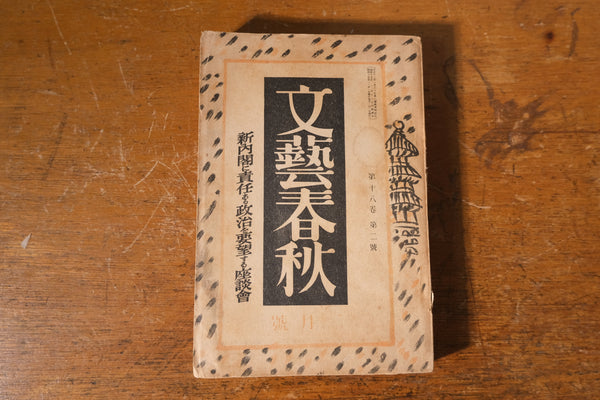 文藝春秋
第十八卷 第二號
新内閣に責任ある政治を要望する座談會
月號